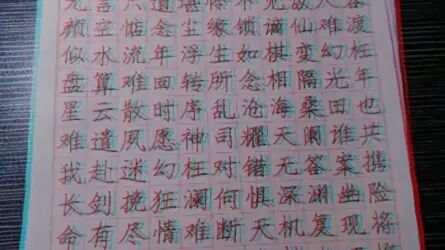 无言只道堪怜不见故人容
颜空惦念尘缘锁谪仙难渡
似水流年浮生如棋变幻枉
盘算难回转所念相隔光年
星云散时序乱沧海桑田也
难遣夙愿神司耀天阑谁共
我赴迷幻枉对错无答案携
长剑挽狂澜何惧深渊幽险
命有尽情难断天机复现将